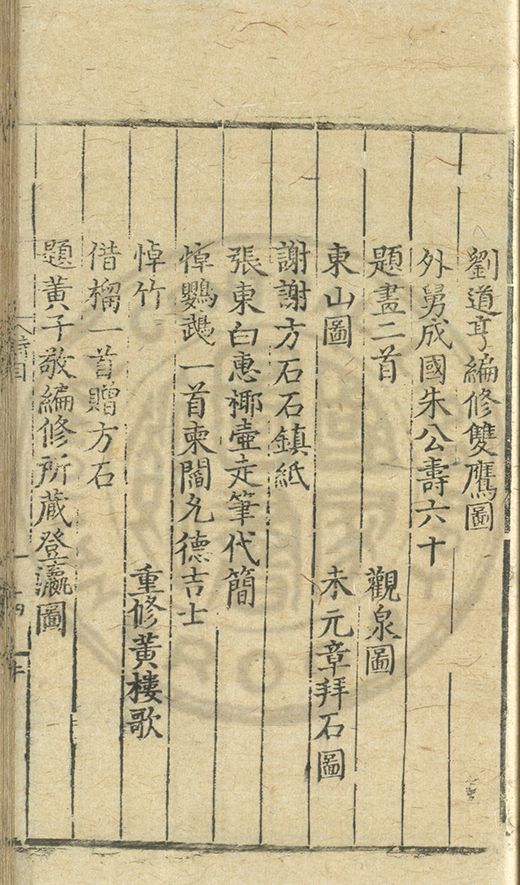 劉道亨編修雙鷹圖
外舅成國朱公壽六十
題畫二首　觀泉圖
東山圖　米元章拜石圖
謝謝方石石鎮紙
張東白惠椰壺走筆代簡
悼鸚鵡一首柬闔允德吉士
悼竹　重修黃樓歌
借榴一首贈方石
題黃子敬編修所藏登瀛圖